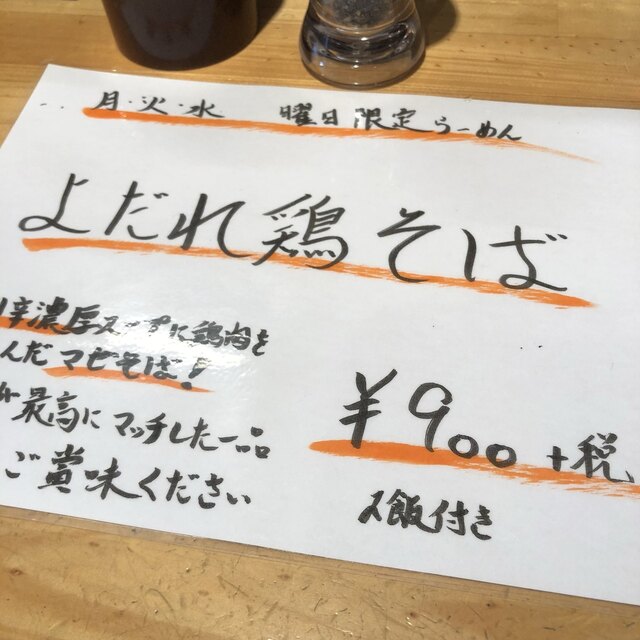 月・火・水 曜日限定らーめん
よだれ鶏そば
辛濃厚スープに鶏肉を
んだマゼそば!
最高にマッチした一品
ご賞味ください
¥900+税
〆飯付き